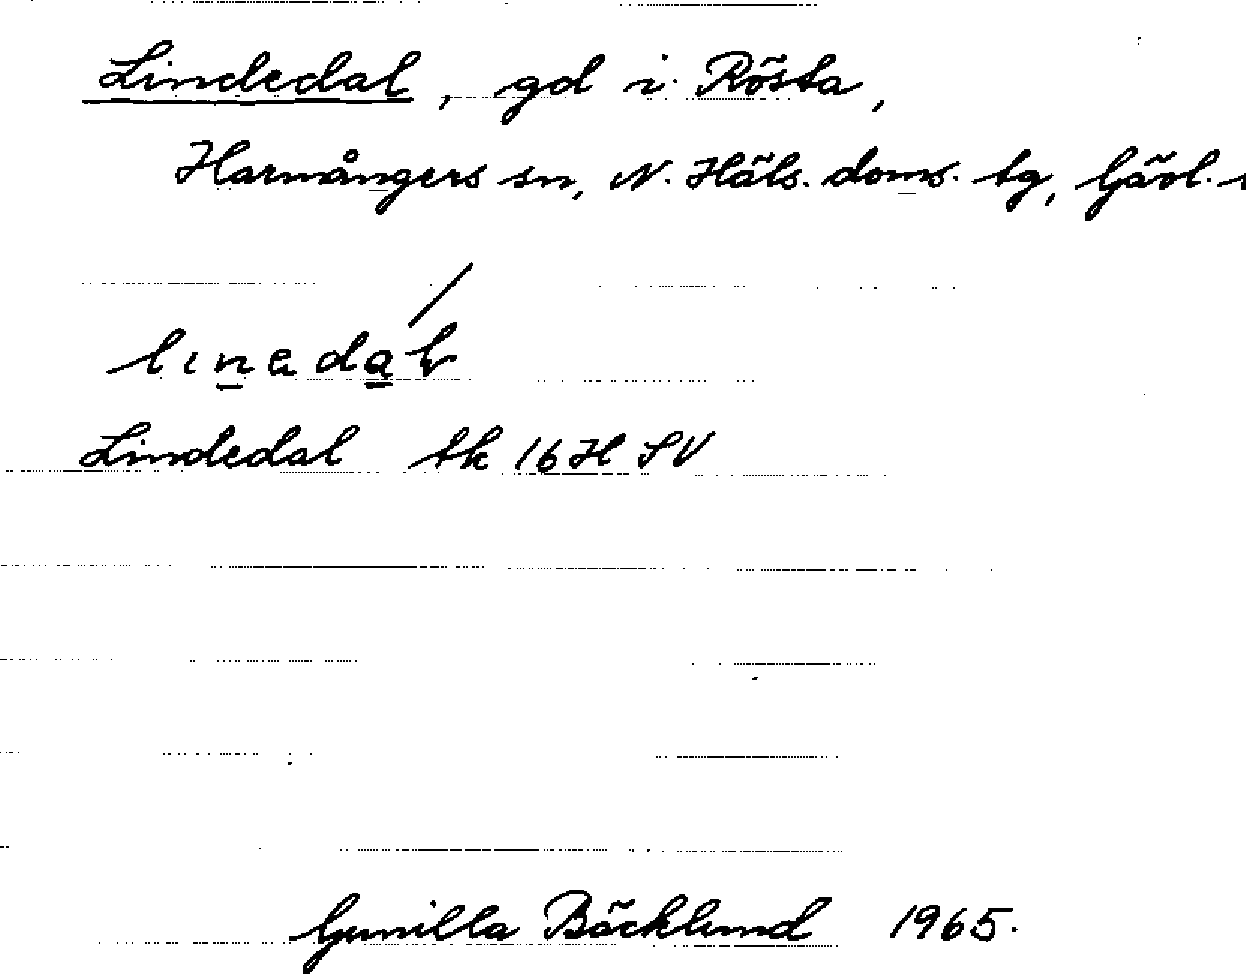 Lindedal, gd i Rösta,
Harmångers sn, N. Häls. doms. tg, Gävl.
lınedal
Lindedal tk 16H SV
Gunilla Bäcklund 1965.